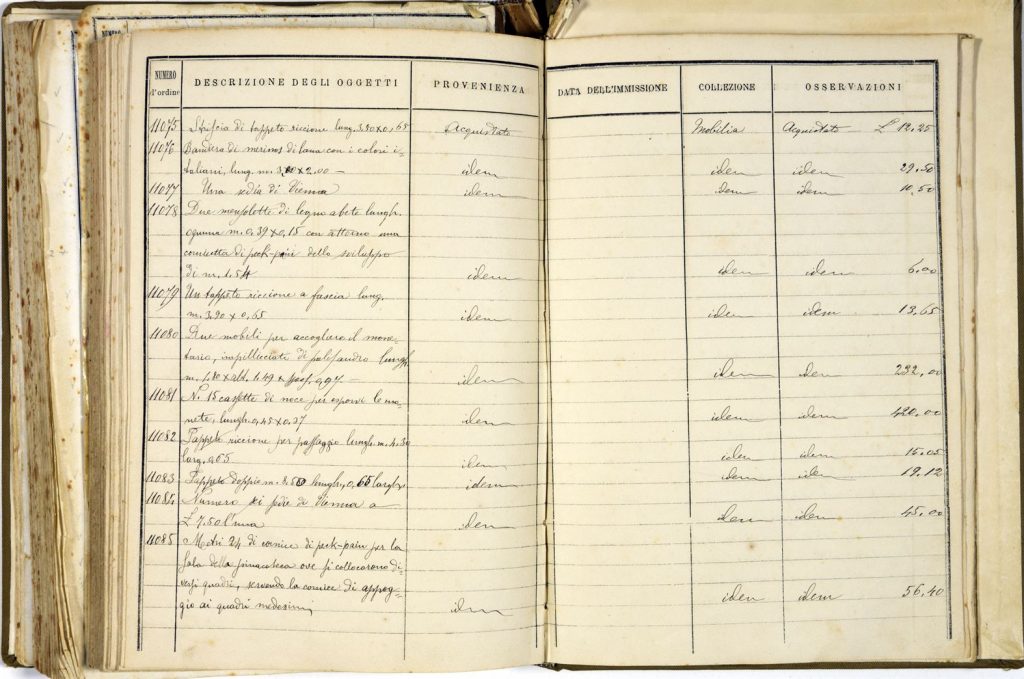 NUMERO d'ordine DESCRIZIONE DEGLI OGGETTI PROVENIENZA DATA DELL'IMMISSIONE COLLEZIONE OSSERVAZIONI
11075 Striscia di tappeto riccione lung. 3.50 x 0,65 Acquistato Mobilia Acquistato £ 12.25
11076 Bandiera di merinos di lana con i colori i-
taliani, lung. m. x 2.00 — idem idem idem 29.50
11077 Una sedia di Vienna idem idem idem 10.50
11078 Due mensolette di legno abete lungh.
ognuna m. 0,39 x 0,15 con attorno una
cornicetta di peck-pain dello sviluppo
di m. 1.54 idem idem idem 6.00
11079 Un tappeto riccione a fascia lung.
m. 3,90 x 0,65 idem idem idem 13.65
11080 Due mobili per accogliere il mone-
tario, impellicciati di palissandro lungh.
m. 1.80 x alt. 1.49 x prof. 0,97 — idem idem idem 232.00
11081 N. 15 cassette di noce per esporvi le mo-
nete, lungh. 0,45 x 0,37 idem idem idem 420.00
11082 Tappeto riccione per passaggio lungh. m. 4.30
larg. 0,65 idem idem idem 15.05
11083 Tappeto doppio m. lungh. 0,65 largh. idem idem idem 19.12
11084 Numero sei sedie di Vienna a
£ 7.50 l'una idem idem idem 45.00
11085 Metri 24 di cornice di peck-pain per la
Sala della pinacoteca ove si collocarono di-
versi quadri, servendo la cornice di appog-
gio ai quadri medesimi, idem idem idem 56.40